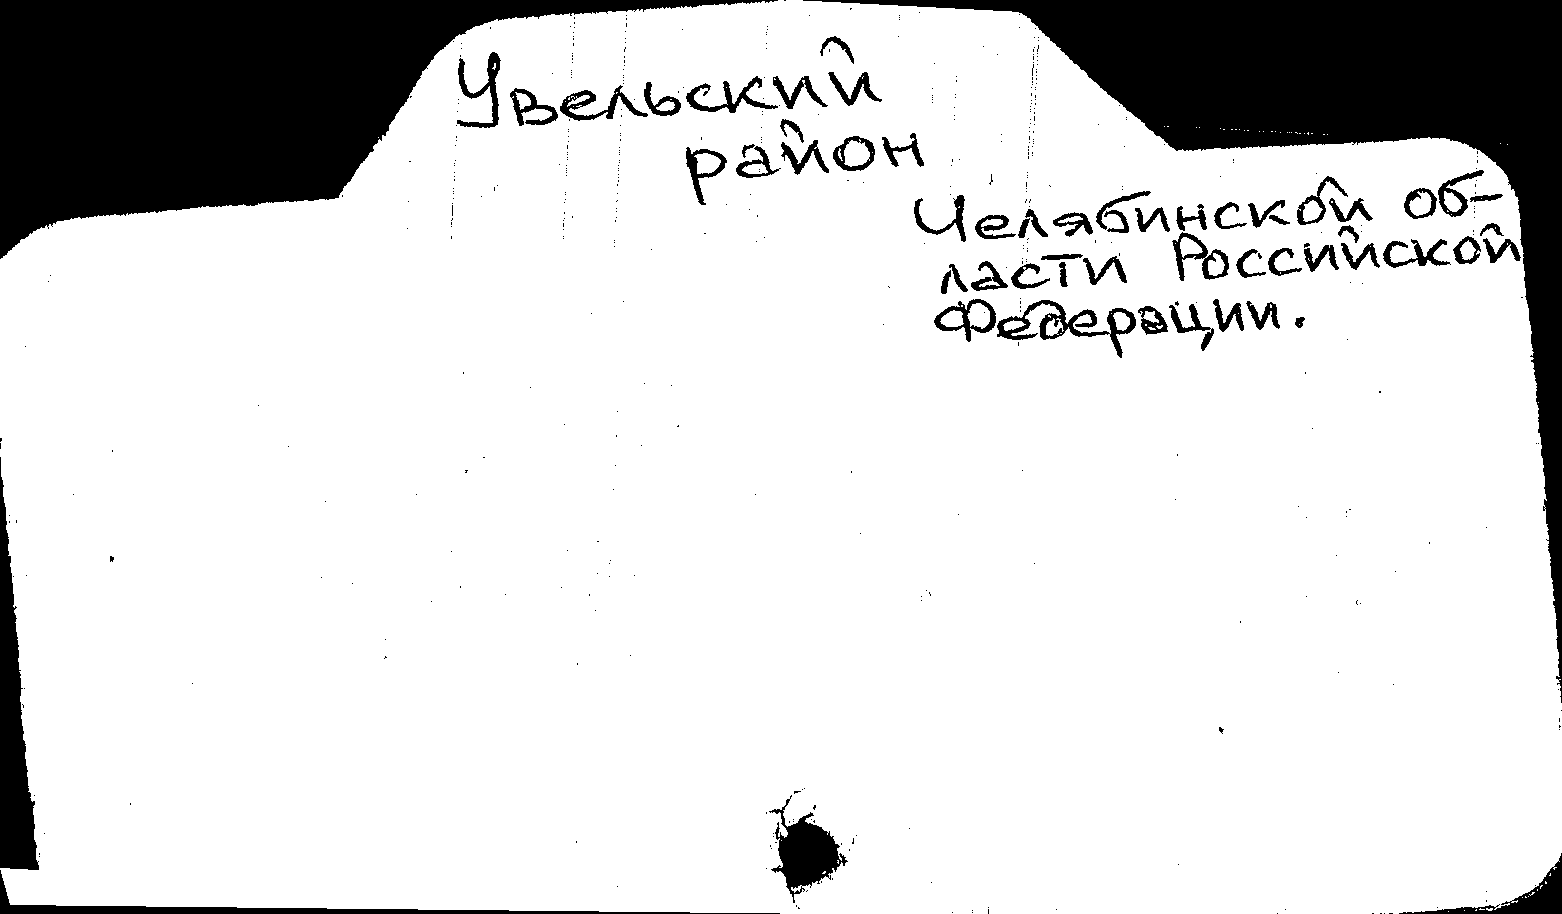 Увельский
район
Челябинской об-
ласти Российской
Федерации.